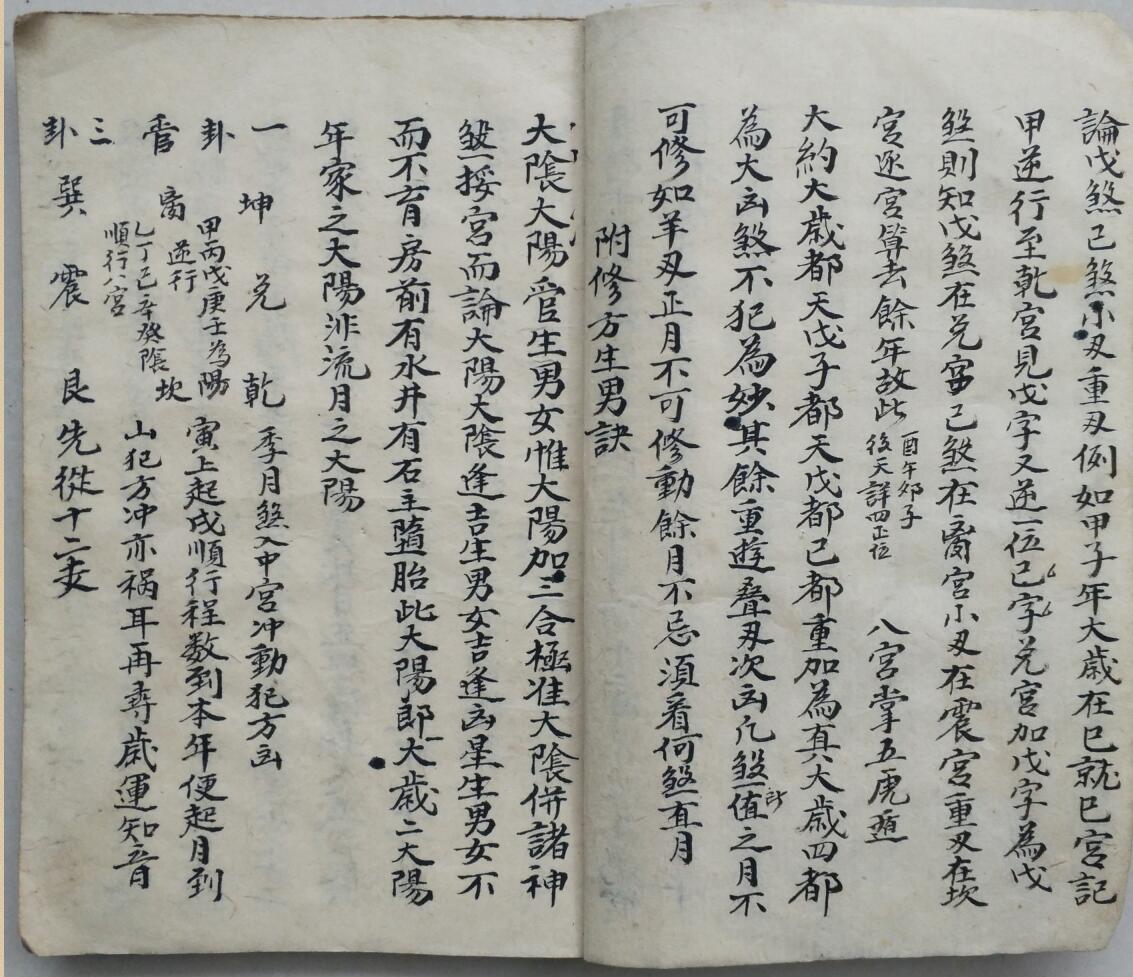 論戊煞己煞小刄重刄例如甲子年大歲在巳就巳宮記
甲逆行至乾宮見戊字又逆一位己字兌宮加戊字為戊
煞則知戊煞在兌宮己煞在离宮小刄在震宮重刄在坎
宮逐宮算去餘年故此
酉午卯子
後天詳四正位
八宮掌五虎遁
大約大歲都天戊子都天戊都己都重加為真大歲四都
為大凶煞不犯為妙其餘重遊叠刄次凶凡煞所值之月不
可修如羊刄正月不可修動餘月不忌須看何煞直月
附修方生男訣
大陰大陽管生男女惟大陽加三合極准大陰併諸神
煞挨宮而論大陽大陰逢吉生男女吉逢凶星生男女不
而不育房前有水井有石主墮胎此大陽郎大歲二大陽
年家之大陽非流月之大陽
一 坤 兌 乾 季月煞入中宮冲動犯方凶
卦 甲丙戊庚壬為陽 寅上起戌順行程数到本年便起月到
逆行
管 离 坎 山犯方冲亦禍耳再尋歲運知音
乙丁己辛癸陰
順行八宮
三
卦 巽 震 艮 先從十二支